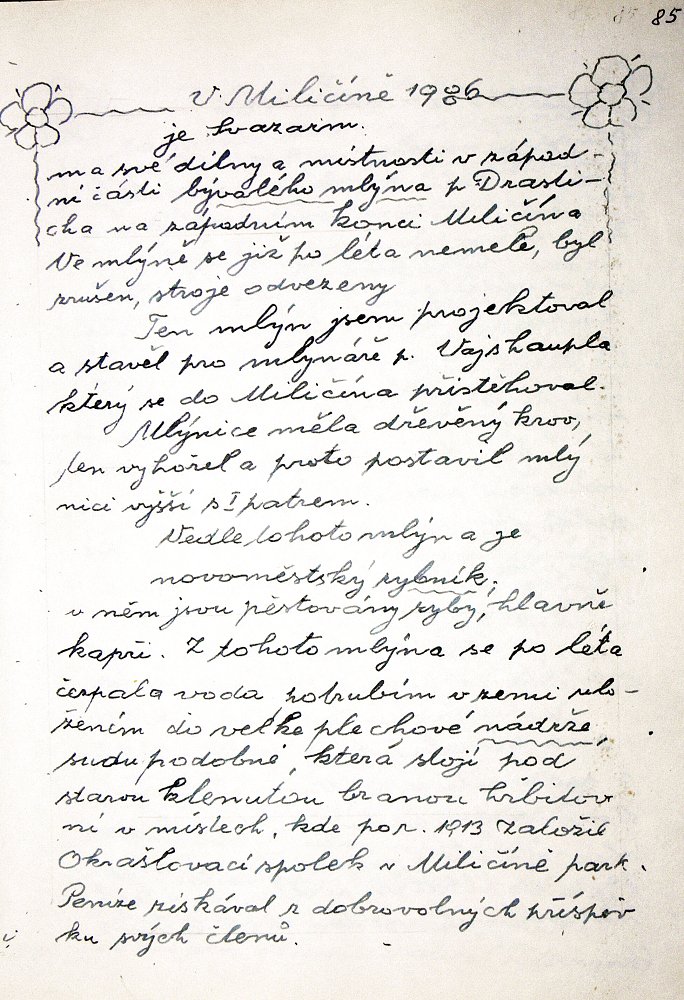 85
V Miličíně 1986
je Svazarm.
ma své dílny a místnosti v západ-
ní části bývalého mlýna p. Drasti-
cha na západním konci Miličína
Ve mlýně se již po léta nemele, byl
zrušen, stroje odvezeny
Ten mlýn jsem projektoval
a stavěl pro mlynáře p. Vajshaupla
který se do Miličína přistěhoval.
Mlýnice měla dřevěný krov,
ten vyhořel a proto postavil mlý
nici vyšší s I patrem.
Vedle tohoto mlýna je
novoměstský rybník.
v něm jsou pěstovány ryby, hlavně
kapři. Z tohoto mlýna se po léta
čerpala voda potrubím v zemi ulo-
žením do velké plechové nádrže
sudu podobné, která stojí pod
starou klenutou branou hřbitov
ní v místech, kde po r. 1913 založil
Okrašlovací spolek v Miličíně park.
Peníze získával z dobrovolných příspěv
ků svých členů.